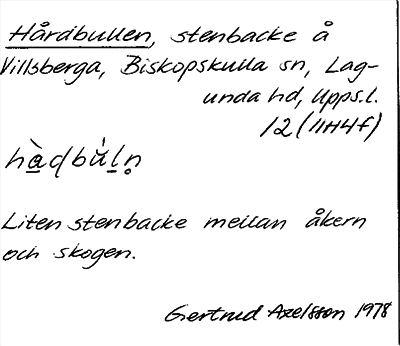 Hårdbullen, stenbacke å
Villsberga, Biskopskulla sn, Lag-
unda hd, Upps.l.
12 (11H4f)
Liten stenbacke mellan åkern
och skogen.
Gertrud Axelsson 1978